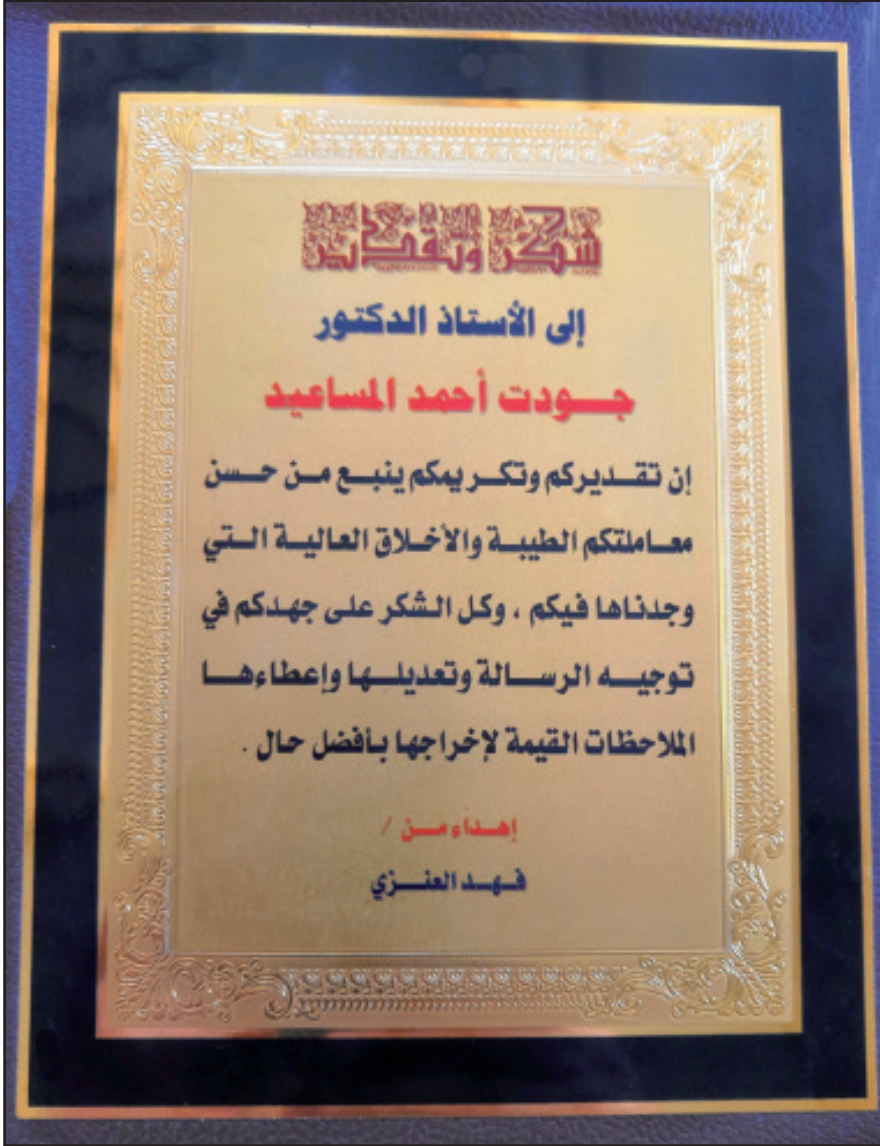 شكر وتقدير
إلى الأستاذ الدكتور
جودت أحمد المساعيد
إن تقديركم وتكريمكم ينبع من حسن
معاملتكم الطيبة والأخلاق العالية التي
وجدناها فيكم ، وكل الشكر على جهدكم في
توجيه الرسالة وتعديلها وإعطاءها
الملاحظات القيمة لإخراجها بأفضل حال .
إهداء من /
فهد العنزي